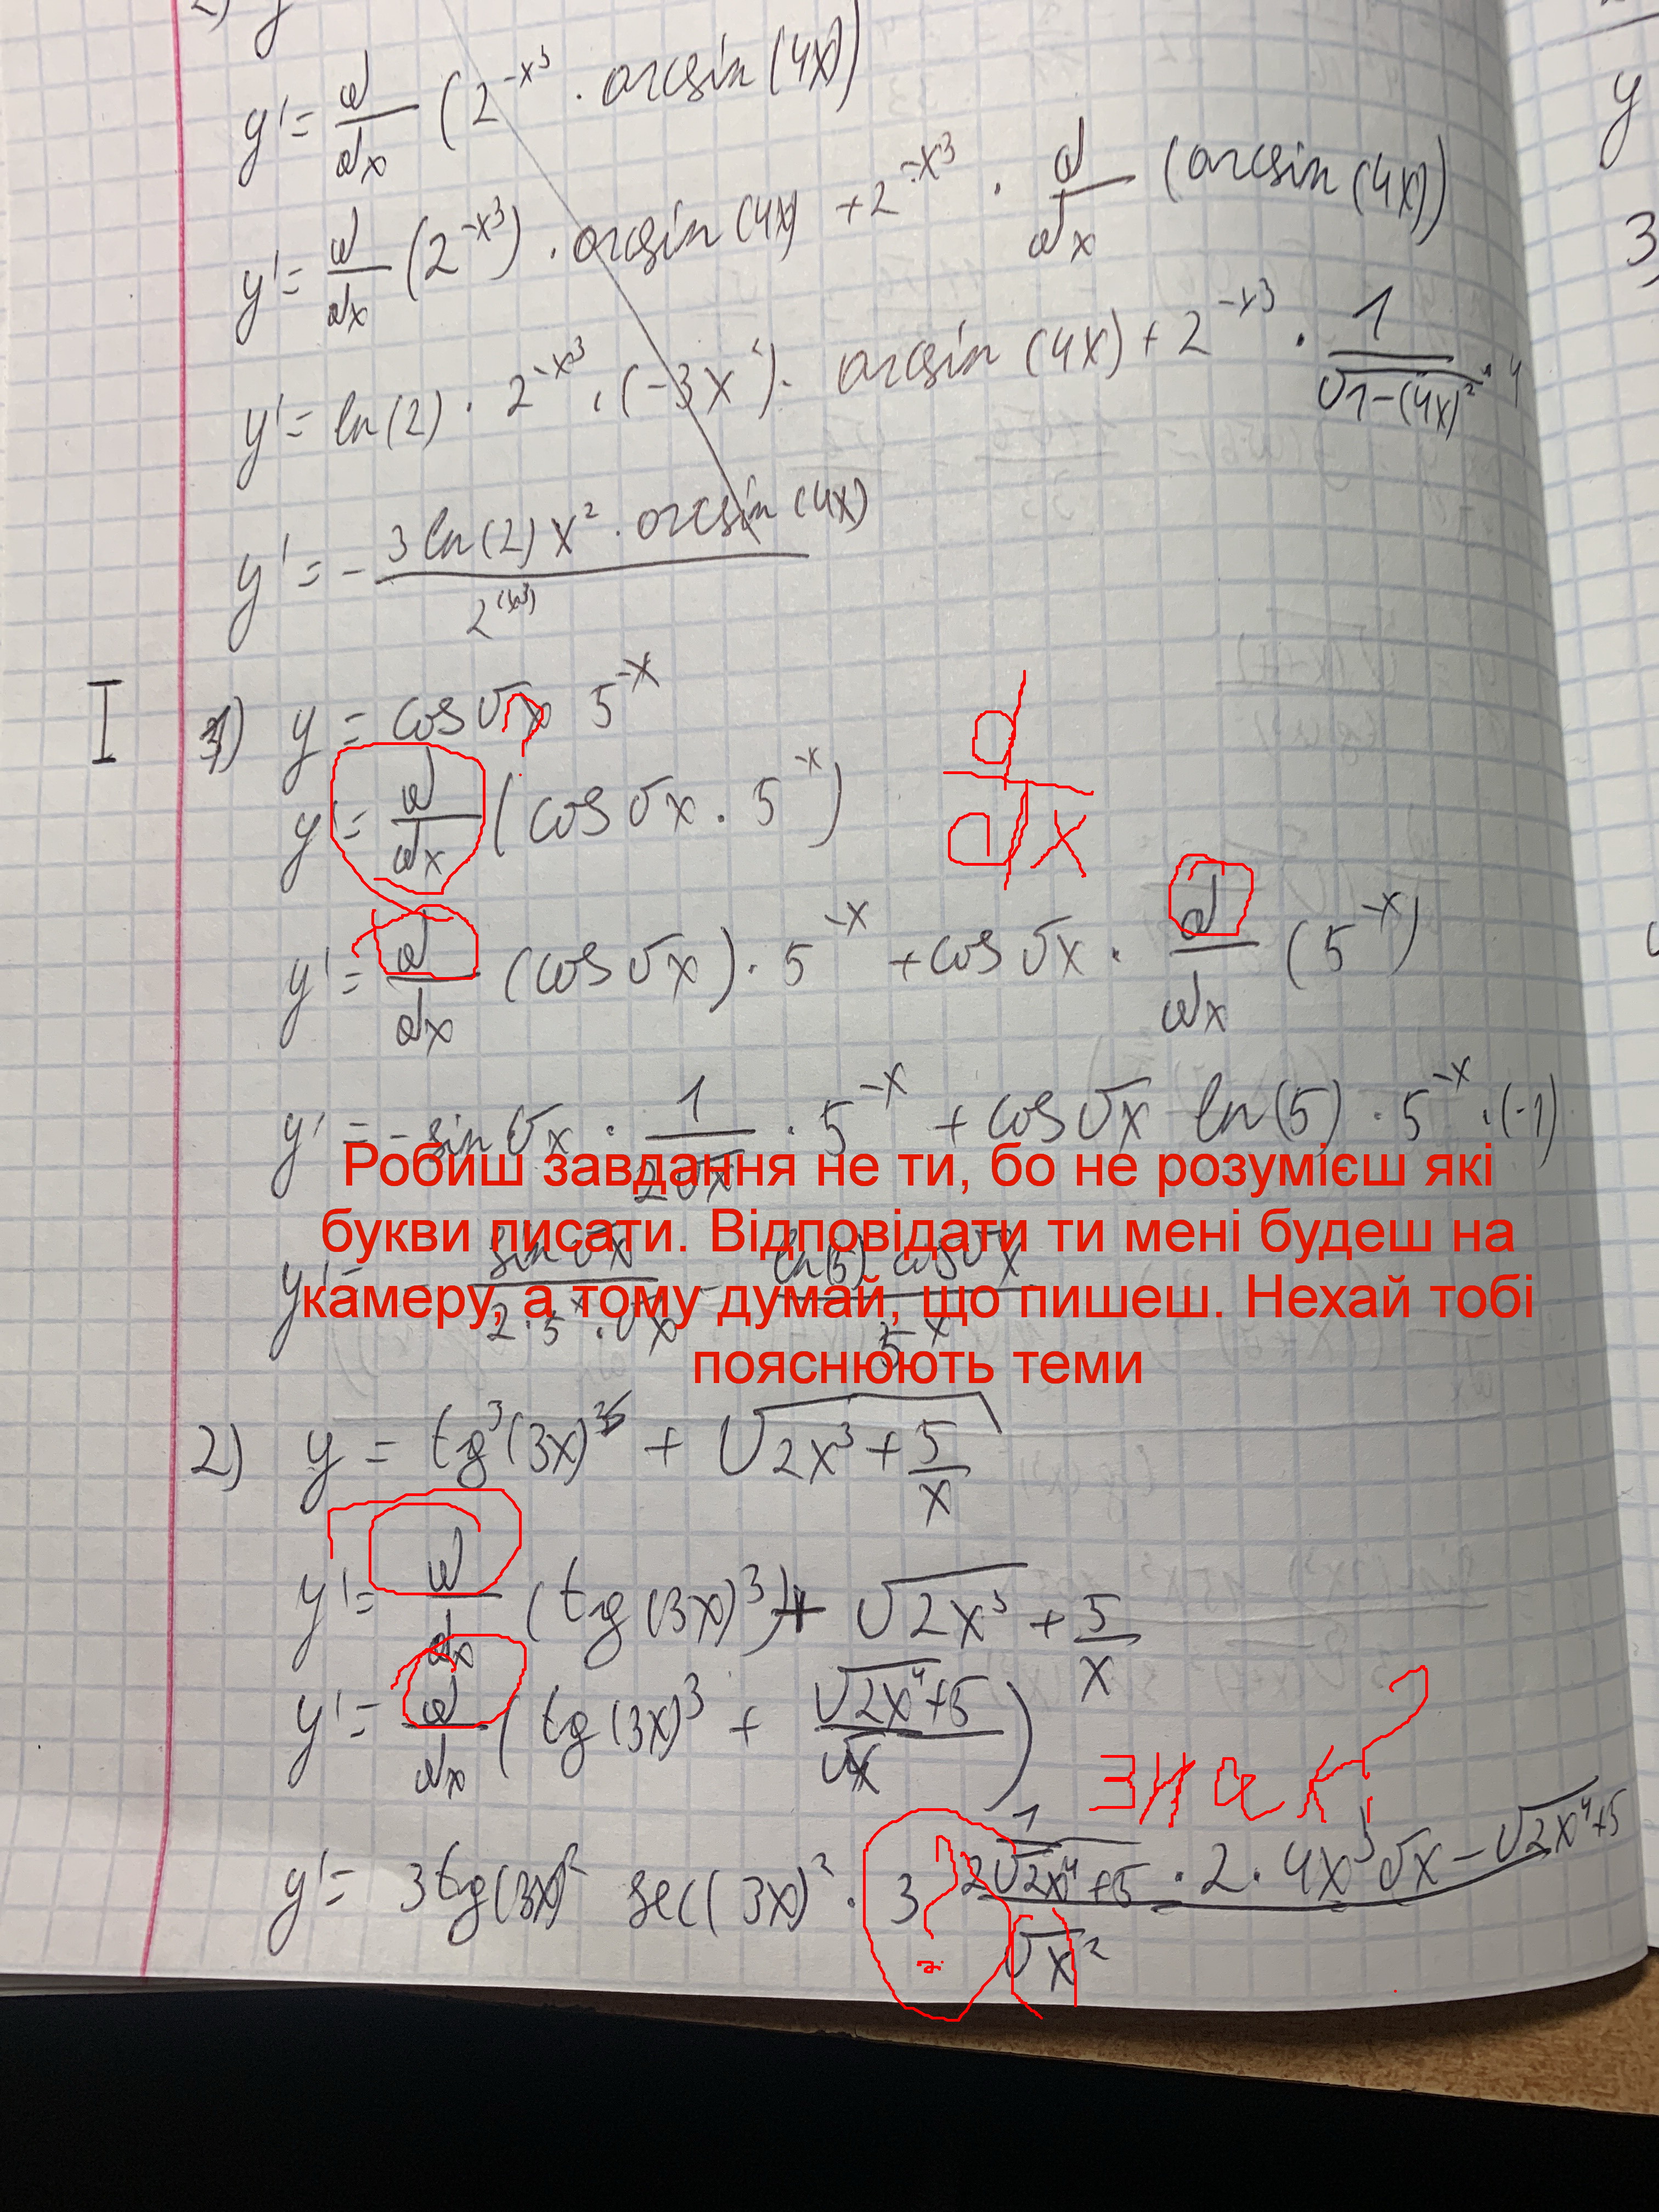 2) y
y' = d/dx (2^{-x^3} · arcsin (4x))
y' = d/dx (2^{-x^3}) · arcsin (4x) + 2^{-x^3} · d/dx (arcsin (4x))
y' = ln(2) · 2^{-x^3} · (-3x^2) · arcsin (4x) + 2^{-x^3} · 1/√(1-(4x)^2) · 4
y' = - (3 ln(2) x^2 · arcsin (4x)) / 2^{(x^3)}
I 1) y = cos √x 5^{-x}
?
y' = d/dx (cos √x · 5^{-x})
d/dx
y' = d/dx (cos √x) · 5^{-x} + cos √x · d/dx (5^{-x})
y' = - sin √x · 1/(2√x) · 5^{-x} + cos √x ln(5) · 5^{-x} · (-1)
Робиш завдання не ти, бо не розумієш які
букви писати. Відповідати ти мені будеш на
камеру, а тому думай, що пишеш. Нехай тобі
пояснюють теми
y' = - sin √x / (2 · 5^x · √x) - ln(5) cos √x / 5^x
2) y = tg^3 (3x) + √(2x^3 + 5/x)
y' = d/dx (tg (3x)^3) + √2x^3 + 5/x
y' = d/dx (tg (3x)^3 + √2x^4+5 / √x)
знак?
y' = 3tg(3x)^2 sec(3x)^2 · 3 ? (1/(2√2x^4+5) · 2 · 4x^3 √x - √2x^4+5) / √x^2
y
3)